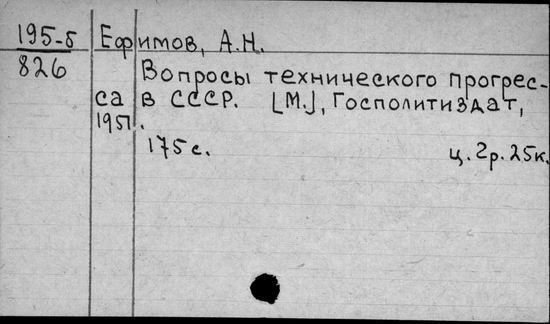 195-5 Ефимов, А.Н.
826 Вопросы технического прогрес-
са в СССР. [М.], Госполитиздат,
1951.
175 с. ц. 2р. 25к.